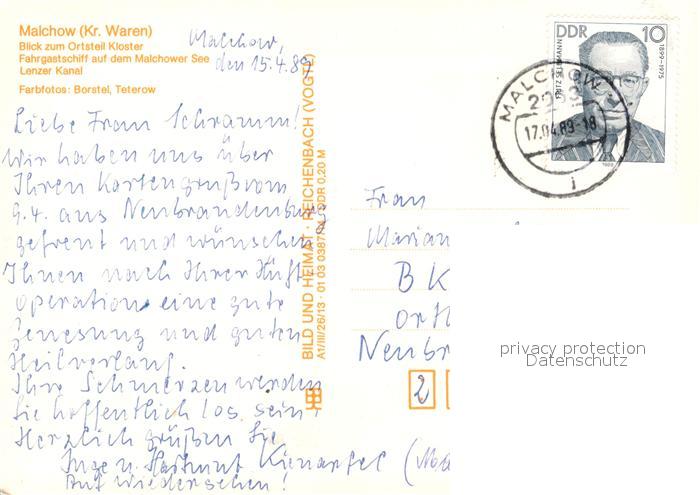 Malchow (Kr. Waren)
Blick zum Ortsteil Kloster
Fahrgastschiff auf dem Malchower See
Lenzer Kanal
Farbfotos: Borstel, Teterow
Malchow,
den 15.4.89
Liebe Frau Schramm!
Wir haben uns über
Ihren Kartengruß vom
9.4. aus Neubrandenburg
gefreut und wünschen
Ihnen nach Ihrer Hüft-
operation eine gute
Genesung und guten
Heilverlauf.
Ihre Schmerzen werden
Sie hoffentlich los sein!
Herzlich grüßen Sie
Inge u. Hartmut
Auf Wiedersehen!
BILD UND HEIMAT · REICHENBACH (VOGTL)
A1/III/26/13 01 03 0387/ DDR 0,20 M
DDR 10
FRITZ SELBMANN 1899-1975
1989
MALCHOW
17.04.89-18
i
Frau
Marian
B K
Orth
Neubr
2
privacy protection
Datenschutz